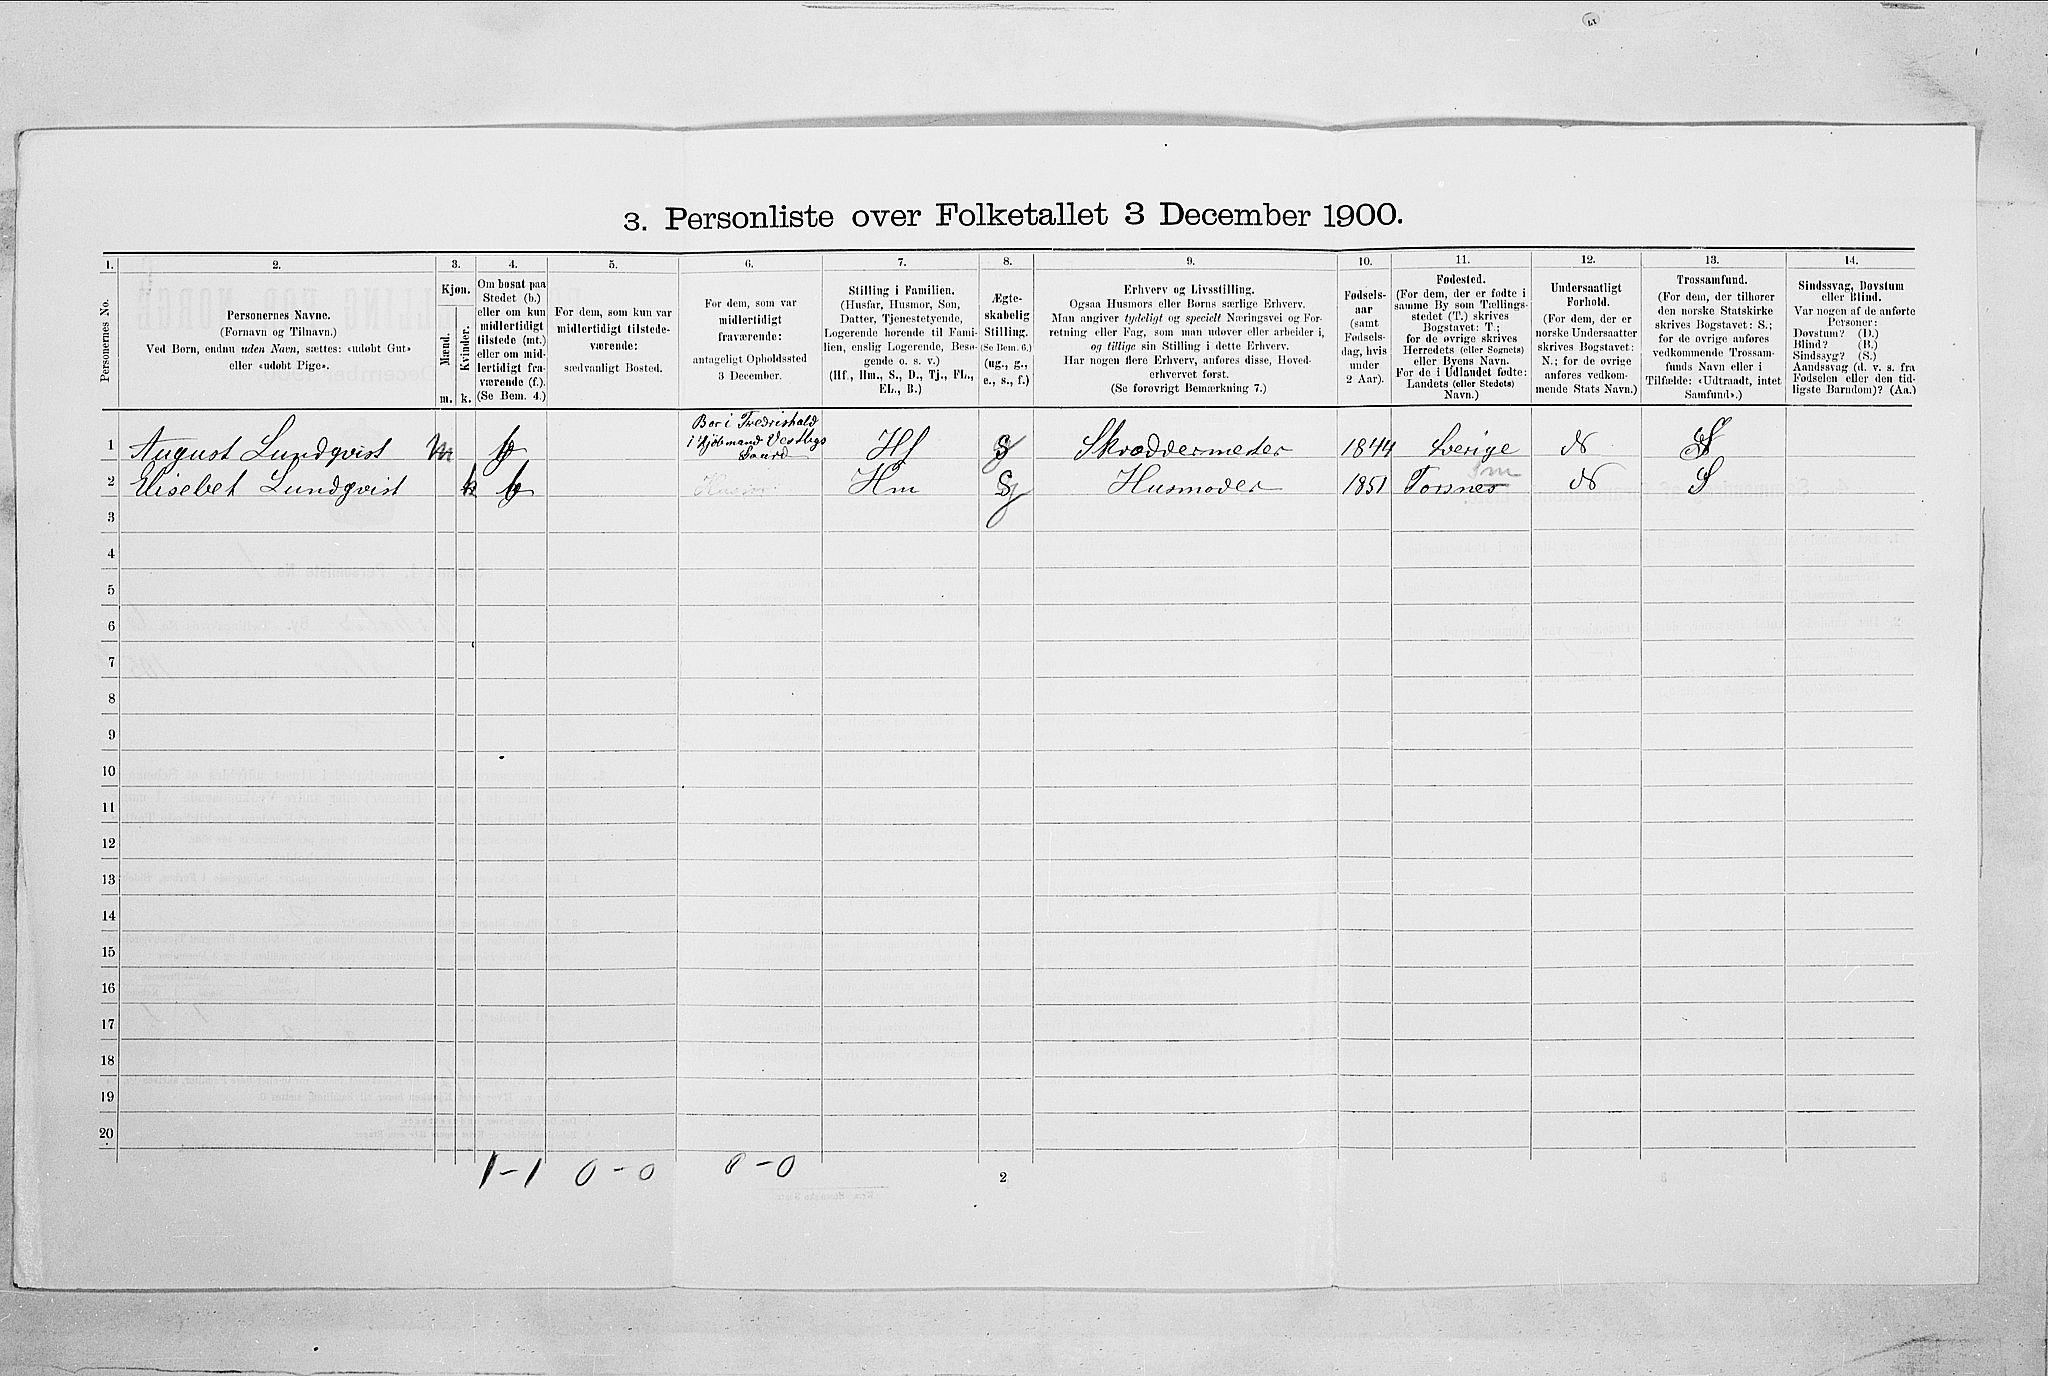 3. Personliste over Folketallet 3 December 1900.
1. 2. 3. 4. 5. 6. 7. 8. 9. 10. 11. 12. 13. 14.
Personernes No.
Personernes Navne.
(Fornavn og Tilnavn.)
Ved Børn, endnu uden Navn, sættes: «udøbt Gut»
eller «udøbt Pige».
Kjøn.
Mænd.
Kvinder.
m. k.
Om bosat paa
Stedet (b.)
eller om kun
midlertidigt
tilstede (mt.)
eller om mid-
lertidigt fra-
værende (f.).
(Se Bem. 4.)
For dem, som kun var
midlertidigt tilstede-
værende:
sædvanligt Bosted.
For dem, som var
midlertidigt
fraværende:
antageligt Opholdssted
3 December.
Stilling i Familien.
(Husfar, Husmor, Søn,
Datter, Tjenestetyende,
Logerende hørende til Fami-
lien, enslig Logerende, Besø-
gende o. s. v.)
(Hf., Hm., S., D., Tj., FL.,
EL., B.)
Ægte-
skabelig
Stilling.
(Se Bem. 6.)
(ug., g.,
e., s., f.)
Erhverv og Livsstilling.
Ogsaa Husmors eller Børns særlige Erhverv.
Man angiver tydeligt og specielt Næringsvei og For-
retning eller Fag, som man udøver eller arbeider i,
og tillige sin Stilling i dette Erhverv.
Har nogen flere Erhverv, anføres disse, Hoved-
erhvervet først.
(Se forøvrigt Bemærkning 7.)
Fødsels-
aar
(samt
Fødsels-
dag, hvis
under
2 Aar).
Fødested.
(For dem, der er fødte i
samme By som Tællings-
stedet (T.) skrives
Bogstavet: T.;
for de øvrige skrives
Herredets (eller Sognets)
eller Byens Navn.
For de i Udlandet fødte:
Landets (eller Stedets)
Navn.)
Undersaatligt
Forhold.
(For dem, der er
norske Undersaatter
skrives Bogstavet:
N.; for de øvrige
anføres vedkom-
mende Stats Navn.)
Trossamfund.
(For dem, der tilhører
den norske Statskirke
skrives Bogstavet: S.;
for de øvrige anføres
vedkommende Trossam-
funds Navn eller i
Tilfælde: «Udtraadt, intet
Samfund».)
Sindssvag, Døvstum
eller Blind.
Var nogen af de anførte
Personer:
Døvstum? (D.)
Blind? (B.)
Sindssyg? (S.)
Aandssvag (d. v. s. fra
Fødselen eller den tid-
ligste Barndom)? (Aa.)
Bor i Fredrishald
i Kjøbmand Vestbys
Gaard
1 August Lundqvist m b Hf g Skræddermester 1844 Sverige N S
2 Elisebet Lundqvist k b Hm g Husmoder 1851 Torsnes N S
3
4
5
6
7
8
9
10
11
12
13
14
15
16
17
18
19
20
1-1 0-0 0-0
2